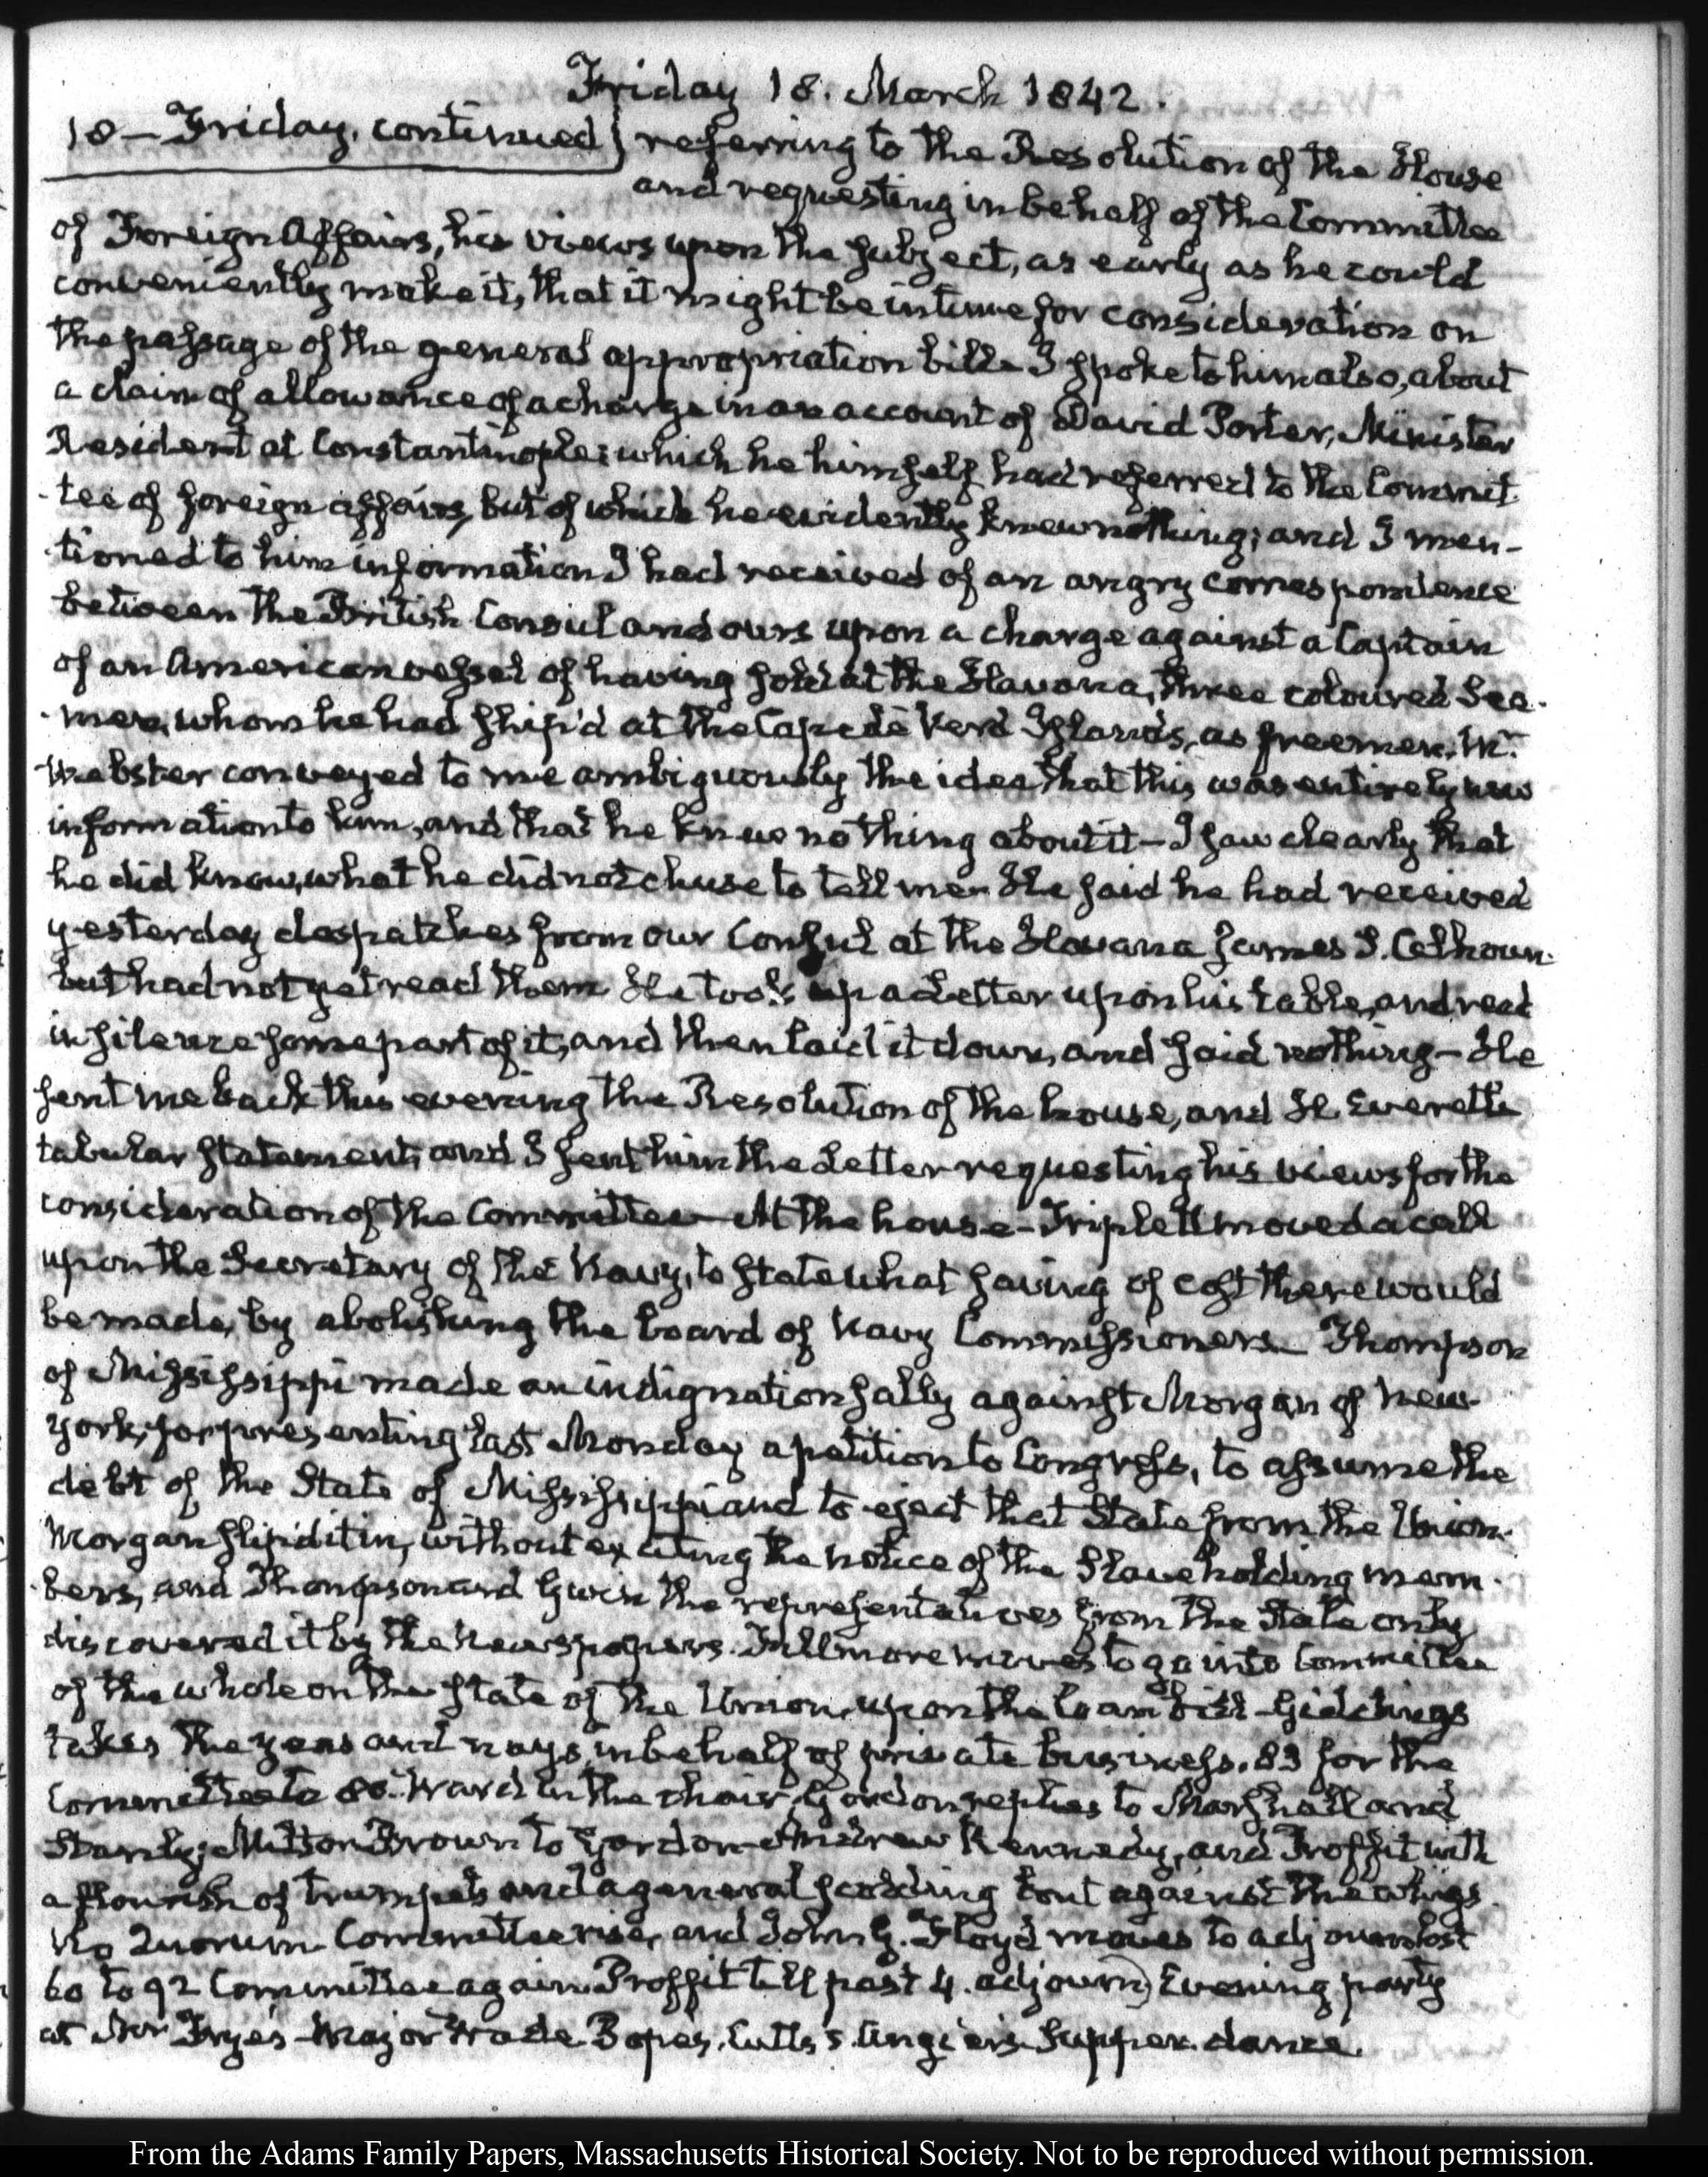 Friday 18. March 1842.
18 — Friday, continued} referring to the Resolution of the House
and requesting in behalf of the Committee
of Foreign Affairs, his views upon the subject, as early as he could
conveniently make it, that it might be in time for consideration on
the passage of the general appropriation bill — I spoke to him also, about
a claim of allowance of a charge in an account of David Porter, Minister
Resident at Constantinople; which he himself had referred to the Commit
-tee of foreign affairs, but of which he evidently knew nothing; and I men-
-tioned to him information I had received of an angry correspondence
between the British Consul and ours upon a charge against a Captain
of an American vessel of having sold at the Havana, three coloured Sea-
-men, whom he had ship'd at the Cape de Verd Islands, as freemen. Mr.
Webster conveyed to me ambiguously the idea that this was entirely new
information to him, and that he knew nothing about it — I saw clearly that
he did know, what he did not chuse to tell me — He said he had received
yesterday despatches from our Consul at the Havana James S. Calhoun.
but had not yet read them He took up a Letter upon his table, and read
in silence some part of it, and then laid it down, and said nothing — He
sent me back this evening the Resolution of the house, and H. Everett's
tabular statement, and I sent him the Letter requesting his views for the
consideration of the Committee — At the house — Triplett moved a call
upon the Secretary of the Navy, to state what saving of cost there would
be made, by abolishing the board of Navy Commissioners — Thompson
of Mississippi made an indignation sally against Morgan of New-
York, for presenting last Monday a petition to Congress, to assume the
debt of the State of Mississippi and to eject that State from the Union.
Morgan slip'd it in, without exciting the notice of the Slave holding mem-
-bers, and Thompson and Gwin the representatives from the State only
discovered it by the Newspapers. Fillmore moves to go into Committee
of the whole on the state of the Union, upon the loan bill — Giddings
takes the yeas and nays, in behalf of private business. 83 for the
Committee to 80. Ward in the chair, Gordon replies to Marshall and
Stanly; Milton Brown to Gordon — Andrew Kennedy, and Proffit with
a flourish of trumpets and a general scolding bout against the Whigs.
No Quorum. Committee rise, and John G. Floyd moves to adjourn lost
60 to 92 Committee again. Proffit till past 4. adjourn) Evening party
at Mr Frye's — Major Wade Popes, Cutts's. Angier's — Supper. dance.
From the Adams Family Papers, Massachusetts Historical Society. Not to be reproduced without permission.